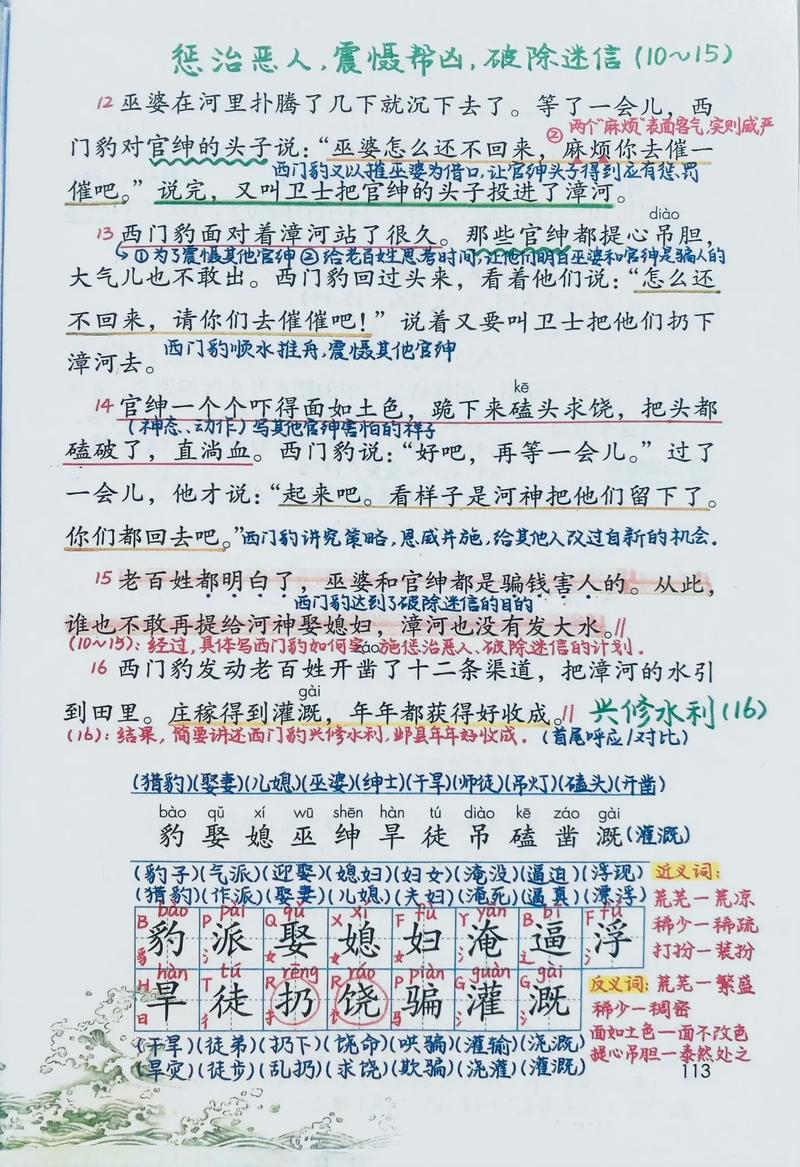 惩治恶人,震慑帮凶,破除迷信(10~15)
12 巫婆在河里扑腾了几下就沉下去了。等了一会儿，西
②两个"麻烦"表面客气,实则威严
门豹对官绅的头子说：“巫婆怎么还不回来，麻烦你去催一
西门豹又以推巫婆为借口,让官绅头子得到应有惩罚
催吧。”说完，又叫卫士把官绅的头子投进了漳河。
diào
13 西门豹面对着漳河站了很久。那些官绅都提心吊胆，
①为了震慑其他官绅②给老百姓思考时间,让他们明白巫婆和官绅是骗人的
大气儿也不敢出。西门豹回过头来，看着他们说：“怎么还
不回来，请你们去催催吧！”说着又要叫卫士把他们扔下
漳河去。
西门豹顺水推舟,震慑其他官绅
kē
14 官绅一个个吓得面如土色，跪下来磕头求饶，把头都
(神态、动作)写其他官绅害怕的样子
磕破了，直淌血。西门豹说：“好吧，再等一会儿。”过了
一会儿，他才说：“起来吧。看样子是河神把他们留下了。
你们都回去吧。”西门豹讲究策略,恩威并施,给其他人改过自新的机会.
15 老百姓都明白了，巫婆和官绅都是骗钱害人的。从此，
西门豹达到了破除迷信的目的
谁也不敢再提给河神娶媳妇，漳河也没有发大水。//
(10~15):经过,具体写西门豹如何实施惩治恶人、破除迷信的计划.
záo
16 西门豹发动老百姓开凿了十二条渠道，把漳河的水引
gài
到田里。庄稼得到灌溉，年年都获得好收成。// 兴修水利(16)
(16):结果,简要讲述西门豹兴修水利,邺县年年好收成. (首尾呼应/对比)
(猎豹)(娶妻)(儿媳)(巫婆)(绅士)(干旱)(师徒)(吊灯)(磕头)(开凿)
bào qǔ xí wū shēn hàn tú diào kē záo gài
豹 娶 媳 巫 绅 旱 徒 吊 磕 凿 溉(灌溉)
(豹子)(气派)(迎娶)(媳妇)(妇女)(淹没)(逼迫)(浮现)
(猎豹)(作派)(娶妻)(儿媳)(夫妇)(淹死)(逼真)(漂浮)
B bào P pài Q qǔ X xí F fù Y yān B bī F fú
豹 派 娶 媳 妇 淹 逼 浮
豸 氵 女 女 女 氵 辶 氵
H hàn T tú R rēng R ráo P piàn G guàn G gài
旱 徒 扔 饶 骗 灌 溉
日 彳 扌 饣 马 氵 氵
(干旱)(徒弟)(扔下)(饶命)(哄骗)(灌输)(浇溉)
(旱灾)(徒步)(乱扔)(求饶)(欺骗)(浇灌)(灌溉)
近义词:
荒芜—荒凉
稀少—稀疏
打扮—装扮
反义词: 荒芜—繁盛
稀少—稠密
面如土色—面不改色
提心吊胆—泰然处之
113